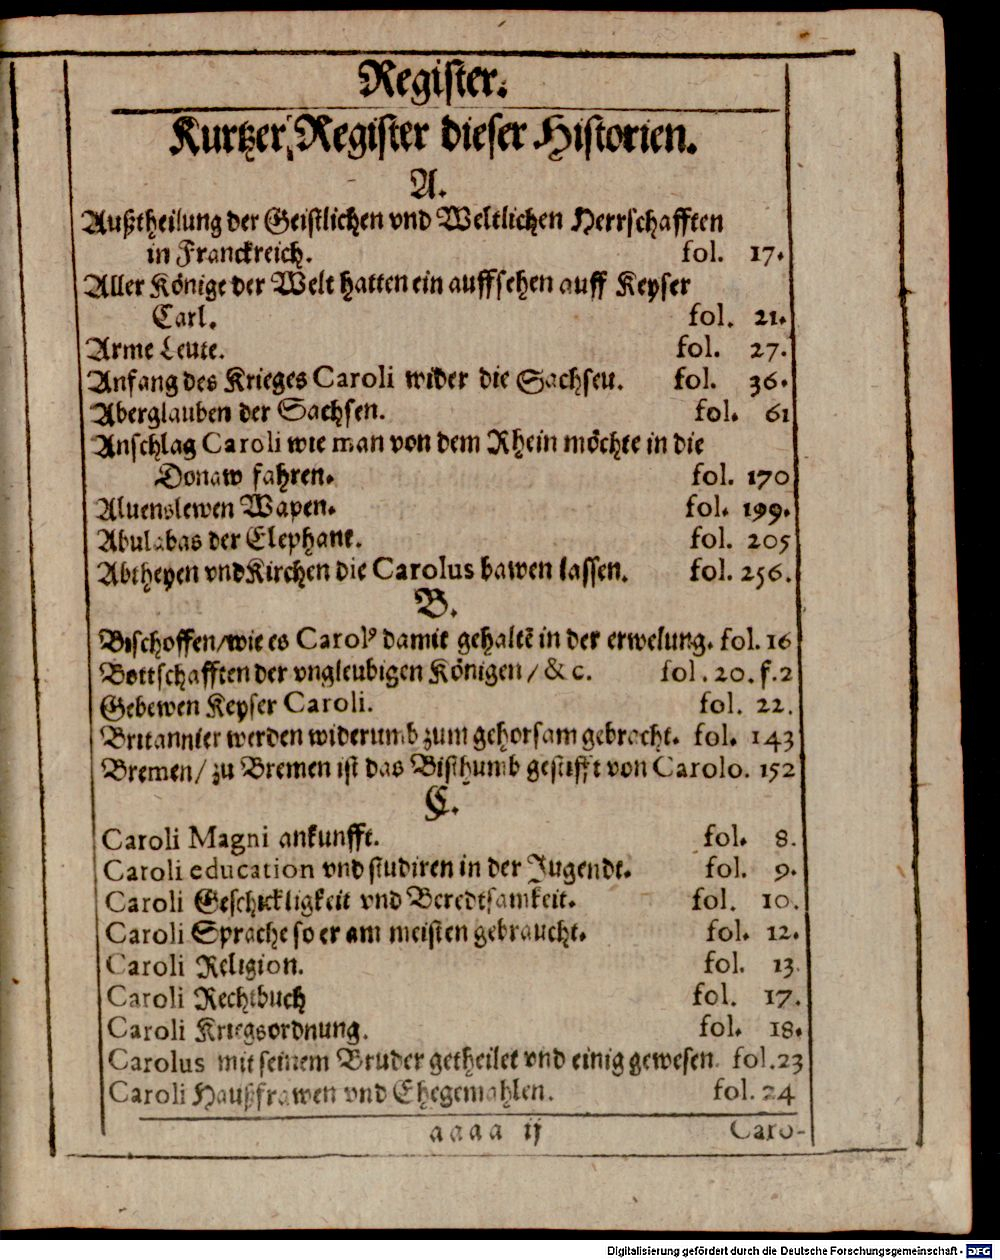 Register.
Kurtzer Register dieser Historien.
A.
Außtheilung der Geistlichen vnd Weltlichen Herrschafften
in Franckreich. fol. 17.
Aller Könige der Welt hatten ein auffsehen auff Keyser
Carl. fol. 21.
Arme Leute. fol. 27.
Anfang des Krieges Caroli wider die Sachsen. fol. 36.
Aberglauben der Sachsen. fol. 61
Anschlag Caroli wie man von dem Rhein möchte in die
Donaw fahren. fol. 170
Aluenslewen Wapen. fol. 199.
Abulabas der Elephant. fol. 205
Abtheyen vnd Kirchen die Carolus bawen lassen. fol. 256.
B.
Bischoffen/wie es Carolꝰ damit gehaltẽ in der erwelung. fol. 16
Bottschafften der vngleubigen Königen / &c. fol. 20. f. 2
Gebewen Keyser Caroli. fol. 22.
Britannier werden widerumb zum gehorsam gebracht. fol. 143
Bremen/ zu Bremen ist das Bisthumb gestifft von Carolo. 152
C.
Caroli Magni ankunfft. fol. 8.
Caroli education vnd studiren in der Jugendt. fol. 9.
Caroli Geschickligkeit vnd Beredtsamkeit. fol. 10.
Caroli Sprache so er am meisten gebraucht. fol. 12.
Caroli Religion. fol. 13.
Caroli Rechtbuch fol. 17.
Caroli Kriegsordnung. fol. 18.
Carolus mit seinem Bruder getheilet vnd einig gewesen. fol. 23
Caroli Haußfrawen vnd Ehegemahlen. fol. 24
aaaa ij Caro-
Digitalisierung gefördert durch die Deutsche Forschungsgemeinschaft - DFG